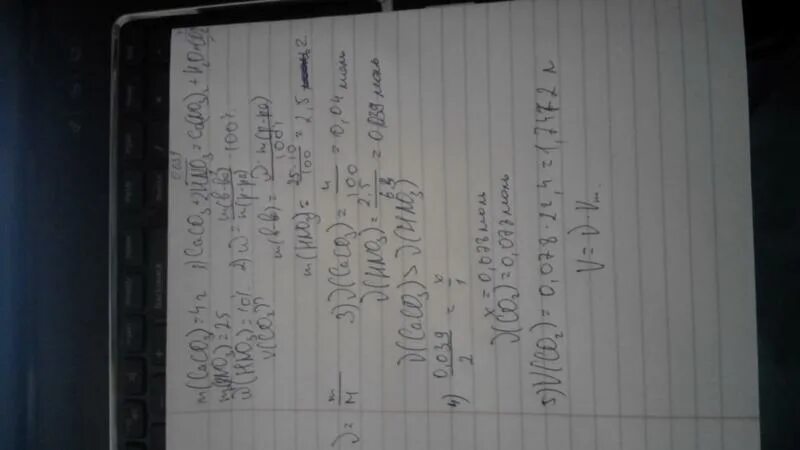 m(CaCO3)=4г
m(HNO3)=25
ω(HNO3)=10%
V(CO2)?
0,039
1) CaCO3+2HNO3=Ca(NO3)2+H2O+CO2
2) ω=m(в-ва)/m(р-ра)·100%
m(в-ва)=ω·m(р-ра)/100%
m(HNO3)=25·10/100=2,5 г
ν=m/M
3) ν(CaCO3)=4/100=0,04 моль
ν(HNO3)=2,5/63=0,039 моль
ν(CaCO3)>ν(HNO3)
4) 0,039/2=x/1
x=0,078 моль
ν(CO2)=0,078 моль
5) V(CO2)=0,078·22,4=1,7472 л
V=ν·Vm.